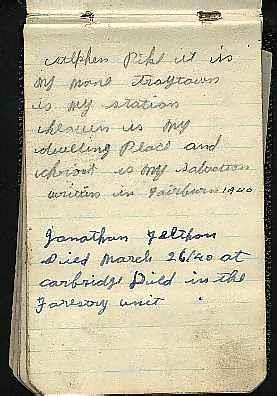 Stephen Pike it is
my name Traytown
is my station
heaven is my
dwelling Place and
christ is my salvation
written in Fairburn 1940
Jonathan Felthan
Died March 26/40 at
carbridge Dild in the
Farestry unit